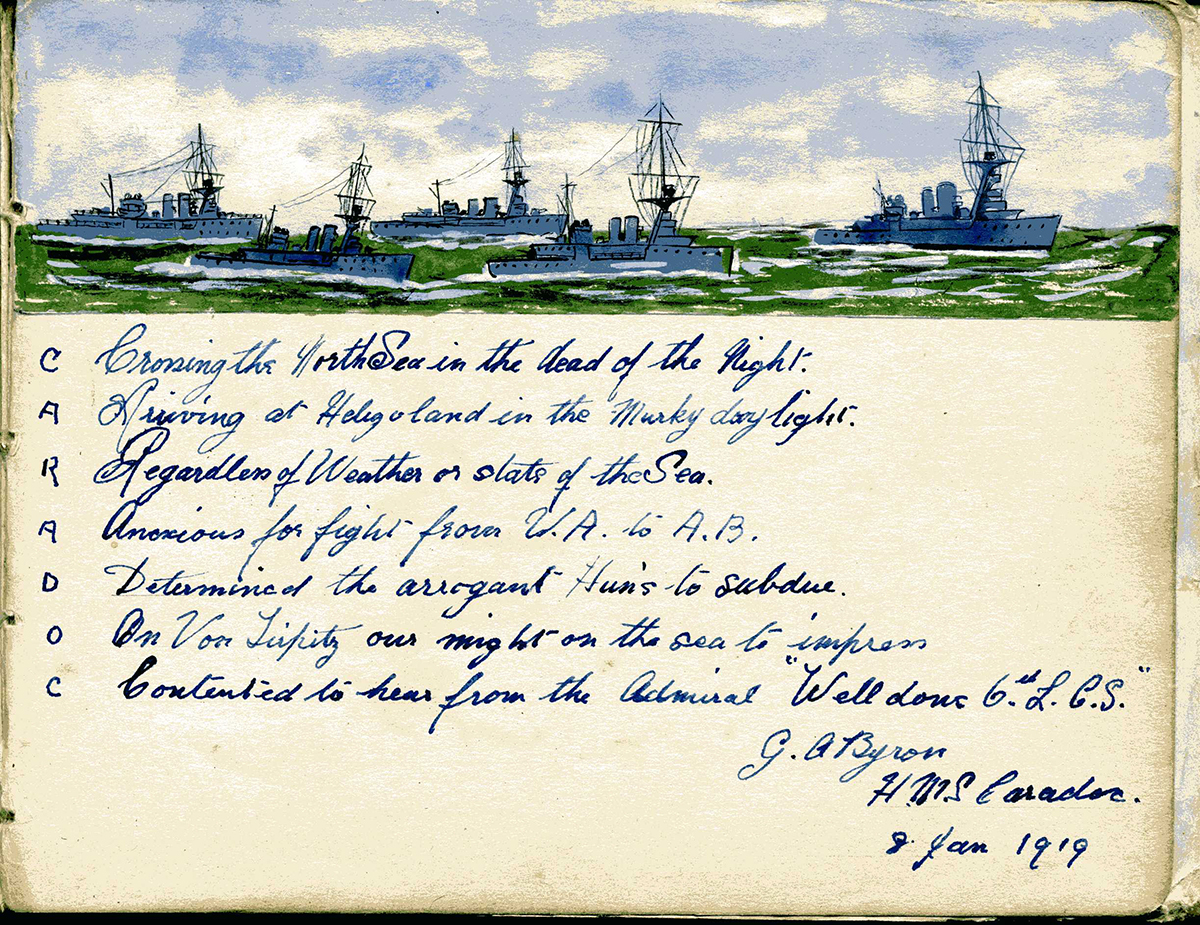 C Crossing the North Sea in the dead of the Night.
A Arriving at Heligoland in the Murky daylight.
R Regardless of Weather or state of the Sea.
A Anxious for fight from V.A. to A.B.
D Determined the arrogant Hun's to subdue.
O On Von Tirpitz our might on the sea to impress
C Contented to hear from the Admiral "Well done 6th L.C.S."
G. A Byron
H.M.S Caradoc.
8 Jan 1919